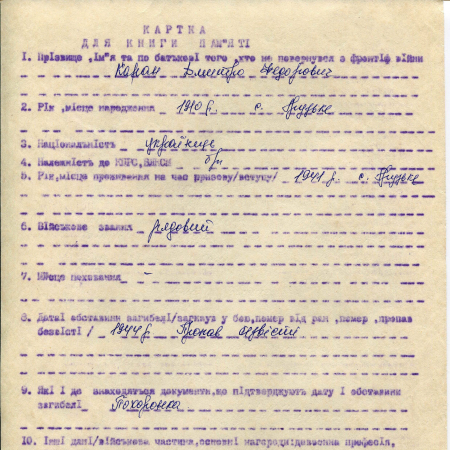 КАРТКА
ДЛЯ КНИГИ ПАМ"ЯТІ
1. Прізвище, ім"я та по батькові того, хто не повернувся з фронтів війни
Каран Дмитро Федорович
2. Рік, місце народження 1910 р. с.
3. Національність українець
4. Належність до КПРС, ВЛКСМ б/п
5. Рік, місце проживання на час призову/вступу/ 1941 р. с.
6. Військове звання рядовий
7. Місце поховання -
8. Дата і обставини загибелі/загинув у бою, помер від ран, помер, пропав
безвісті/ 1944 р. Пропав безвісті
9. Які і де знаходяться документи, що підтверджують дату і обставини
загибелі Похоронка
10. Інші дані/військова частина, основні нагороди: довоєнна професія,